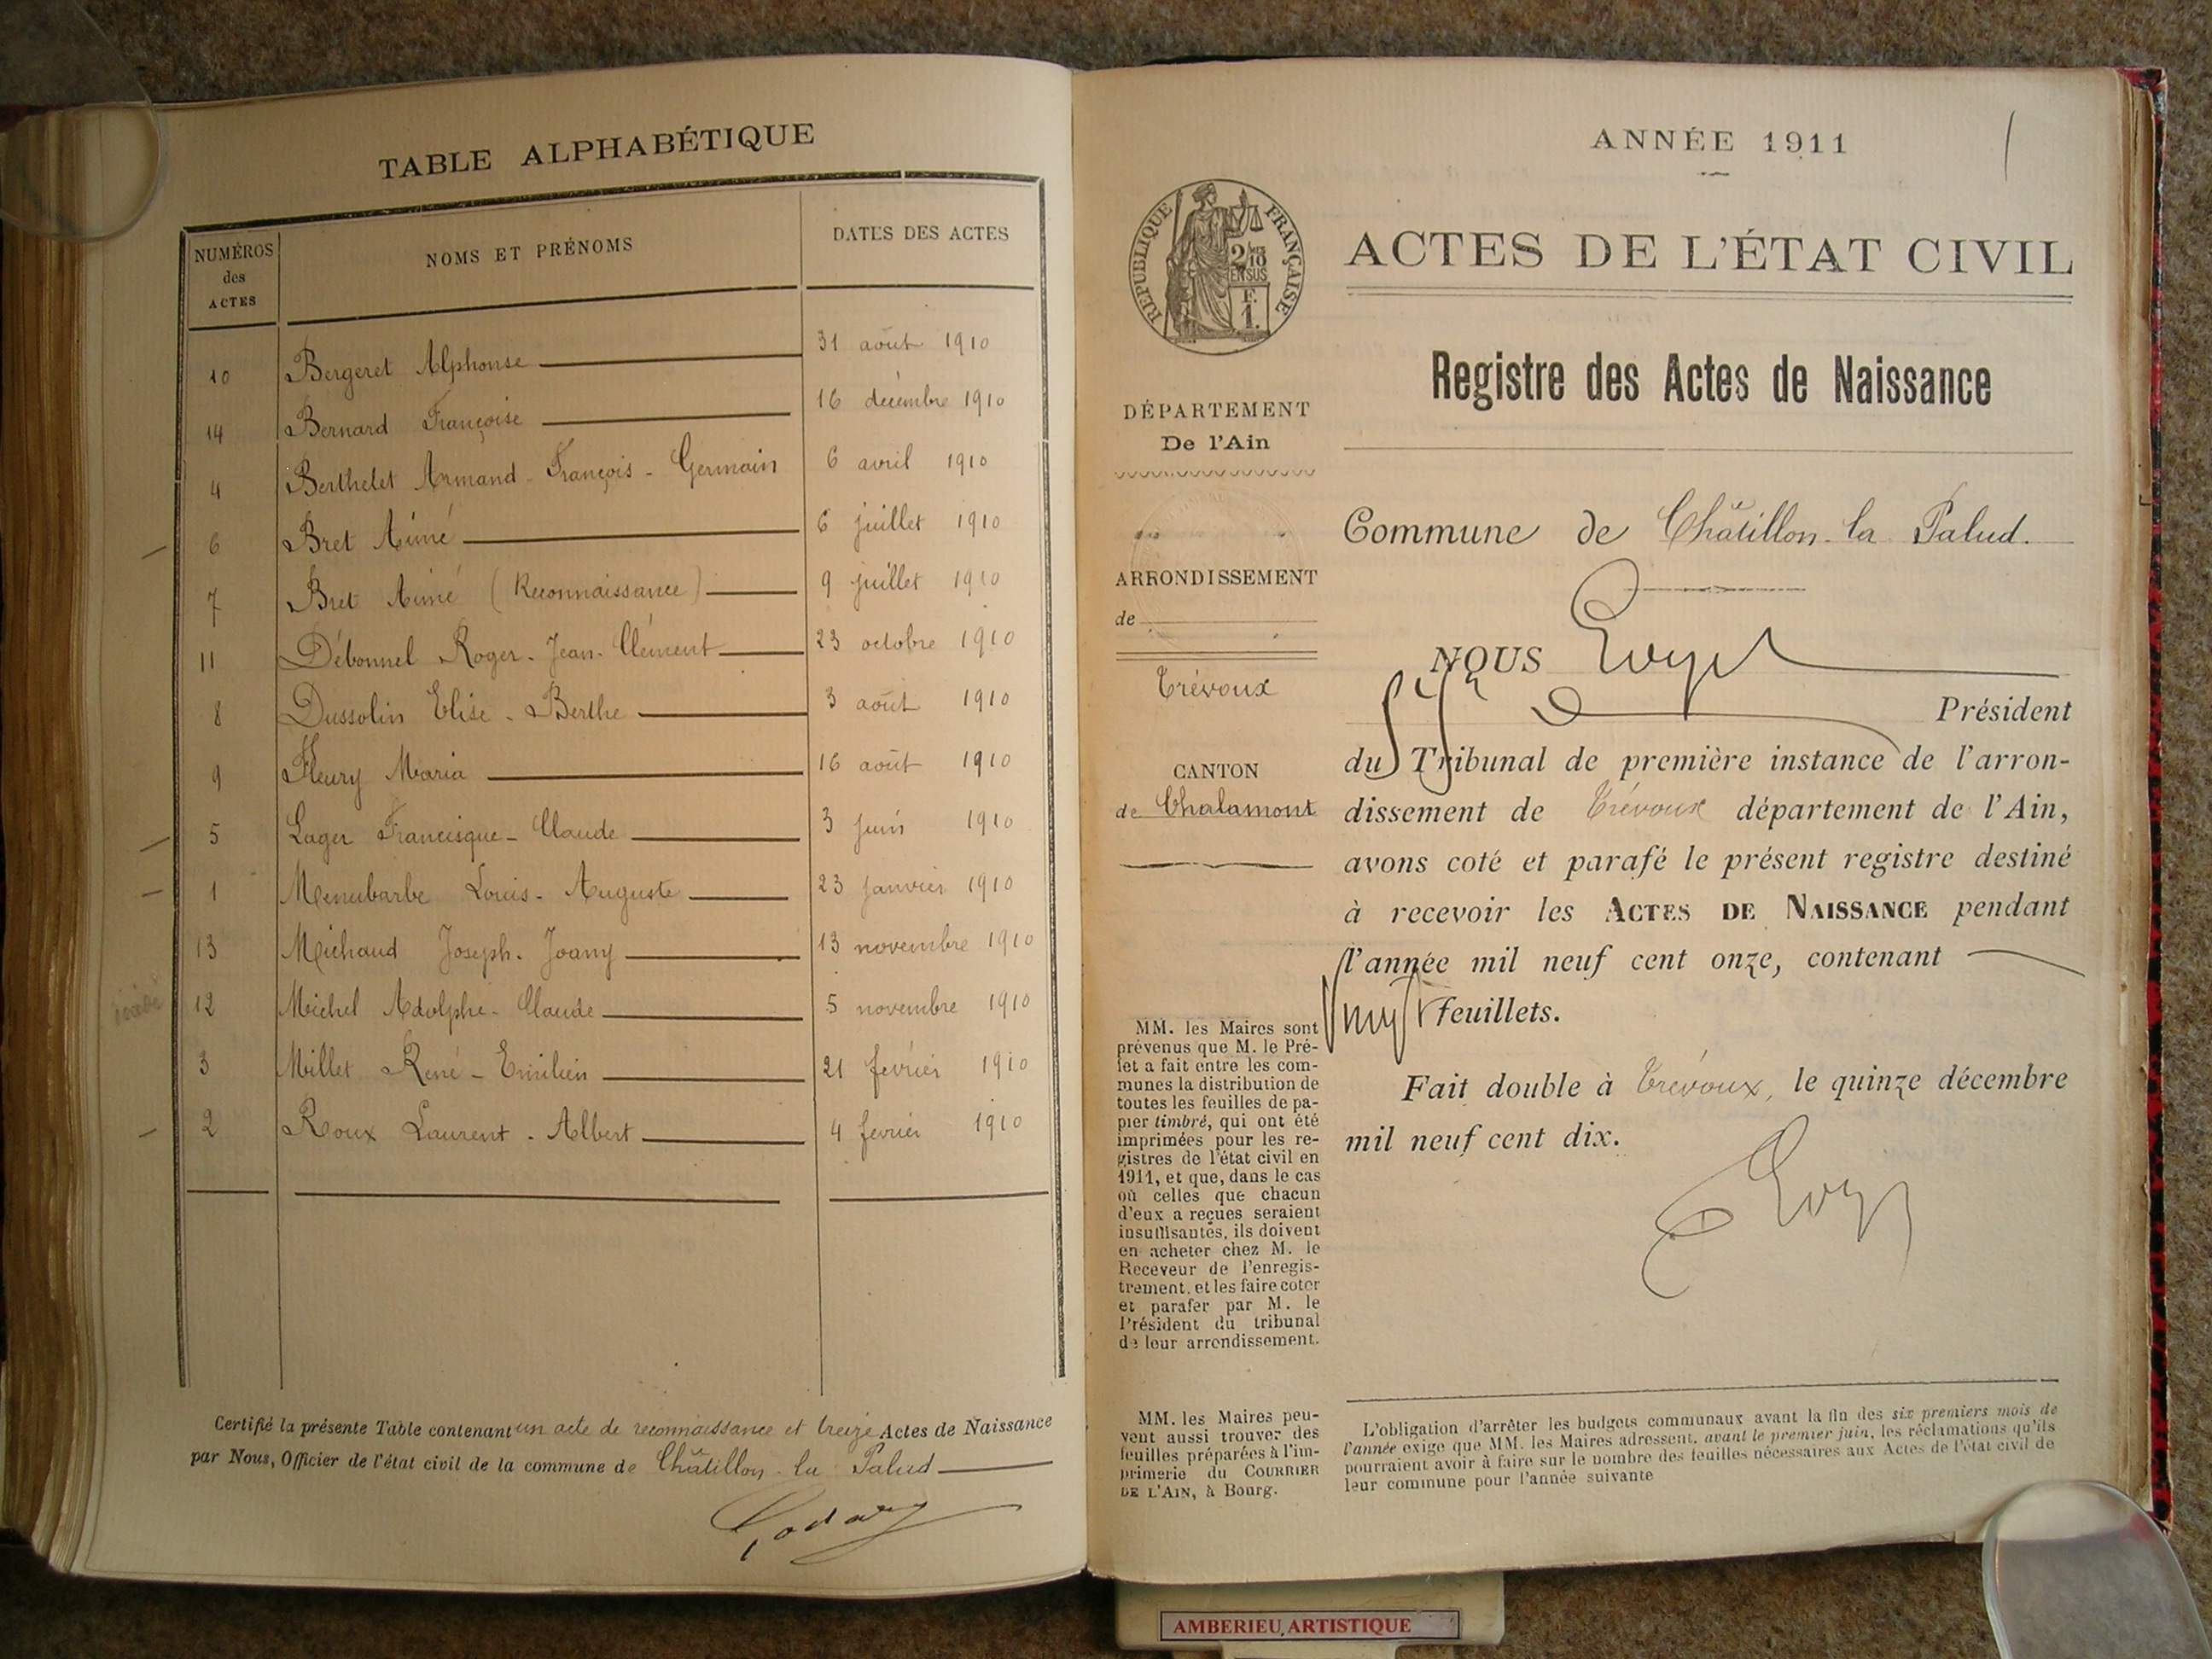 TABLE ALPHABÉTIQUE
NUMÉROS des ACTES
NOMS ET PRÉNOMS
DATES DES ACTES
10 Bergeret Alphonse 31 août 1910
14 Bernard Françoise 16 décembre 1910
4 Berthelet Armand - François - Germain 6 avril 1910
6 Bret Aimé 6 juillet 1910
7 Bret Aimé (Reconnaissance) 9 juillet 1910
11 Débonnel Roger - Jean - Clément 23 octobre 1910
8 Dussolin Elise - Berthe 3 août 1910
9 Fleury Maria 16 août 1910
5 Lager Francisque - Claude 3 juin 1910
1 Menubarbe Louis - Auguste 23 janvier 1910
13 Michaud Joseph - Joany 13 novembre 1910
12 Michel Adolphe - Claude 5 novembre 1910
3 Millet René - Emilien 21 février 1910
2 Roux Laurent - Albert 4 février 1910
Certifié la présente Table contenant un acte de reconnaissance et treize Actes de Naissance
par Nous, Officier de l'état civil de la commune de Châtillon la Palud
ANNÉE 1911
RÉPUBLIQUE FRANÇAISE
2/10 EN SUS
F. 1.
ACTES DE L'ÉTAT CIVIL
Registre des Actes de Naissance
DÉPARTEMENT
De l'Ain
ARRONDISSEMENT
de
Trévoux
CANTON
de Chalamont
MM. les Maires sont
prévenus que M. le Pré-
fet a fait entre les com-
munes la distribution de
toutes les feuilles de pa-
pier timbré, qui ont été
imprimées pour les re-
gistres de l'état civil en
1911, et que, dans le cas
où celles que chacun
d'eux a reçues seraient
insuffisantes, ils doivent
en acheter chez M. le
Receveur de l'enregis-
trement, et les faire coter
et parafer par M. le
Président du tribunal
de leur arrondissement.
MM. les Maires peu-
vent aussi trouver des
feuilles préparées à l'im-
primerie du COURRIER
DE L'AIN, à Bourg.
Commune de Châtillon-la Palud.
NOUS
Président
du Tribunal de première instance de l'arron-
dissement de Trévoux département de l'Ain,
avons coté et parafé le présent registre destiné
à recevoir les ACTES DE NAISSANCE pendant
l'année mil neuf cent onze, contenant
feuillets.
Fait double à Trévoux, le quinze décembre
mil neuf cent dix.
L'obligation d'arrêter les budgets communaux avant la fin des six premiers mois de
l'année exige que MM. les Maires adressent, avant le premier juin, les réclamations qu'ils
pourraient avoir à faire sur le nombre des feuilles nécessaires aux Actes de l'état civil de
leur commune pour l'année suivante
AMBERIEU ARTISTIQUE